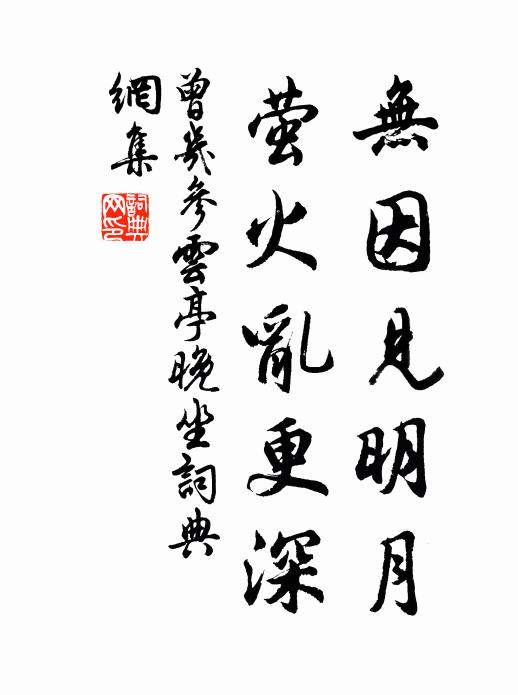 無因見明月
萤火亂更深
曾幾參雲亭晚坐詞典
網集
詞典网印